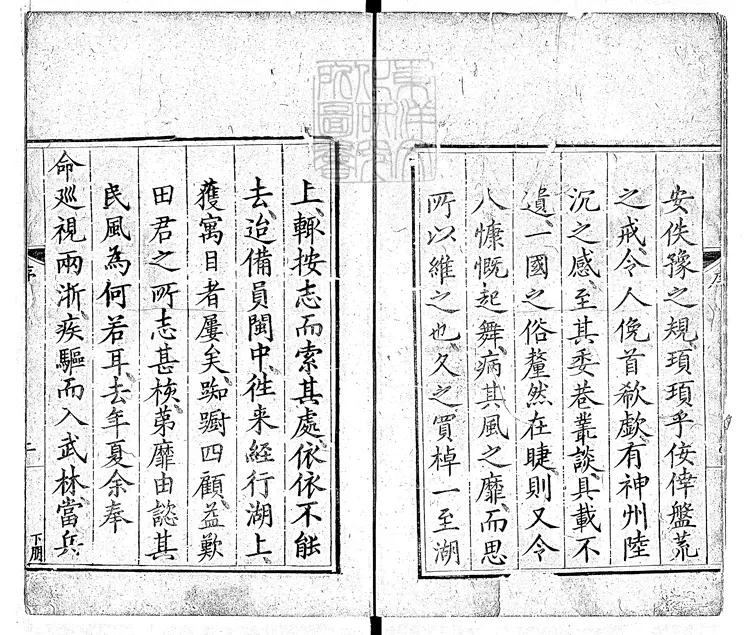 安佚豫之規瑣瑣乎佞倖盤荒
之戒令人俛首欷歔有神州陸
沉之感至其委巷叢談具載不
遺一國之俗釐然在睫則又令
人慷慨起舞病其風之靡而思
所以維之也久之買棹一至湖
序
上輙按志而索其處依依不能
去迨備員閩中徃来經行湖上
獲寓目者屢矣踟躕四顧益歎
田君之所志甚核第靡由諗其
民風為何若耳去年夏余奉
命廵視兩浙疾驅而入武林當兵
序
二
東洋文
化研究
所圖書